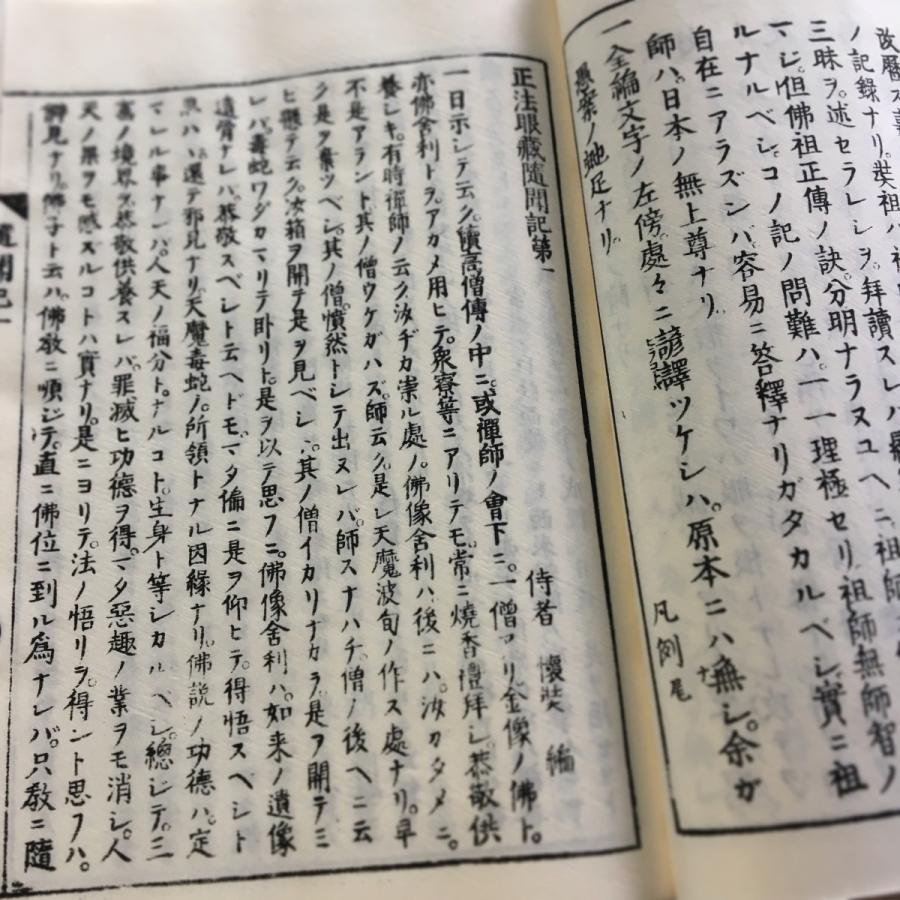 ノ記錄ナリ。奘祖ハ
三昧ヲ。述セラレシヲ。拜讀スレバ
マシ。但佛祖正傳ノ訣。分明ナラヌユヘニ。祖師
ルナルベシ。コノ記ノ問難ハ。一一理極セリ。祖師無師智ノ
自在ニアラズンバ。容易ニ答釋ナリガタカルベシ。實ニ祖
師ハ。日本ノ無上尊ナリ。
一全編文字ノ左傍。處々ニ諺譯ツケシハ。原本ニハ無シ。余ガ
愚案ノ虵足ナリ。
凡例尾
正法眼藏隨聞記第一
侍者 懷奘 編
一日示シテ云ク。續高僧傳ノ中ニ。或禪師ノ會下ニ。一僧アリ。金像ノ佛ト。
亦佛舍利トヲ。アカメ用ヒテ。衆寮等ニアリテモ。常ニ燒香禮拜シ。恭敬供
養シキ。有時禪師ノ云ク。汝ヂカ崇ル處ノ。佛像舍利ハ。後ニハ。汝カタメニ。
不是アラント。其ノ僧ウケガハズ。師云ク。是レ天魔波旬ノ作ス處ナリ。早
ク是ヲ棄ツベシ。其ノ僧。憤然トシテ出ヌレバ。師スナハチ。僧ノ後ヘニ云
ヒ懸テ云ク。汝箱ヲ開テ是ヲ見ベシト。其ノ僧イカリナカラ。是ヲ開テミ
レバ。毒蛇ワダカマリテ臥リト。是ヲ以テ思フニ。佛像舍利ハ。如來ノ遺像
遺骨ナレバ。恭敬スベシト云ヘドモ。マタ偏ニ是ヲ仰ヒテ。得悟スベシト
思ハヾ。還テ邪見ナリ。天魔毒蛇ノ。所領トナル因緣ナリ。佛說ノ功德ハ。定
マレル事ナレバ。人天ノ福分ト。ナルコト。生身ト等シカルベシ。總ジテ。三
寳ノ境界ヲ。恭敬供養スレバ。罪滅ヒ功德ヲ得。マタ惡趣ノ業ヲモ消シ。人
天ノ果ヲモ感ズルコトハ實ナリ。是ニヨリテ。法ノ悟リヲ。得ント思フハ。
僻見ナリ。佛子ト云ハ。佛敎ニ順ジテ。直ニ佛位ニ到ル爲ナレバ。只敎ニ隨